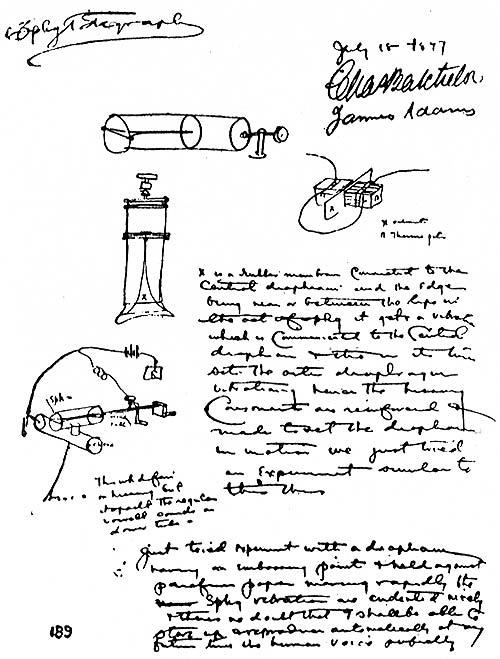 Spkg Telegraph
July 18 1877
Chas Batchelor
James Adams
X is a rubber membrane connected to the
Central diaphram and the edge
being near or between the lips in
the act of spkg it gets a vibratn
which is communicated to the Central
diaphram & this in its turn
sets the outer diaphragm
vibrating hence the hissing
Consonants are reinforced &
made to set the diaphram
in motion we just tried
an Experiment similar to
this
vowell sounds
down tube
Just tried experiment with a diaphram
having an embossing point & held against
parafin paper moving rapidly the
Spkg vibrations are indented nicely
& theres no doubt that I shall be able to
store up & reproduce automatically at any
future time the human voice perfectly
189